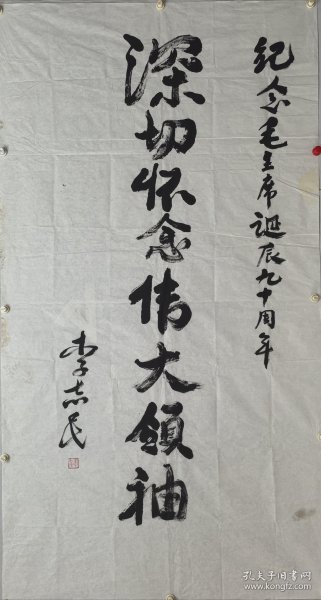 纪念毛主席诞辰九十周年
深切怀念伟大领袖
李志民
孔夫子旧书网
www.kongfz.com